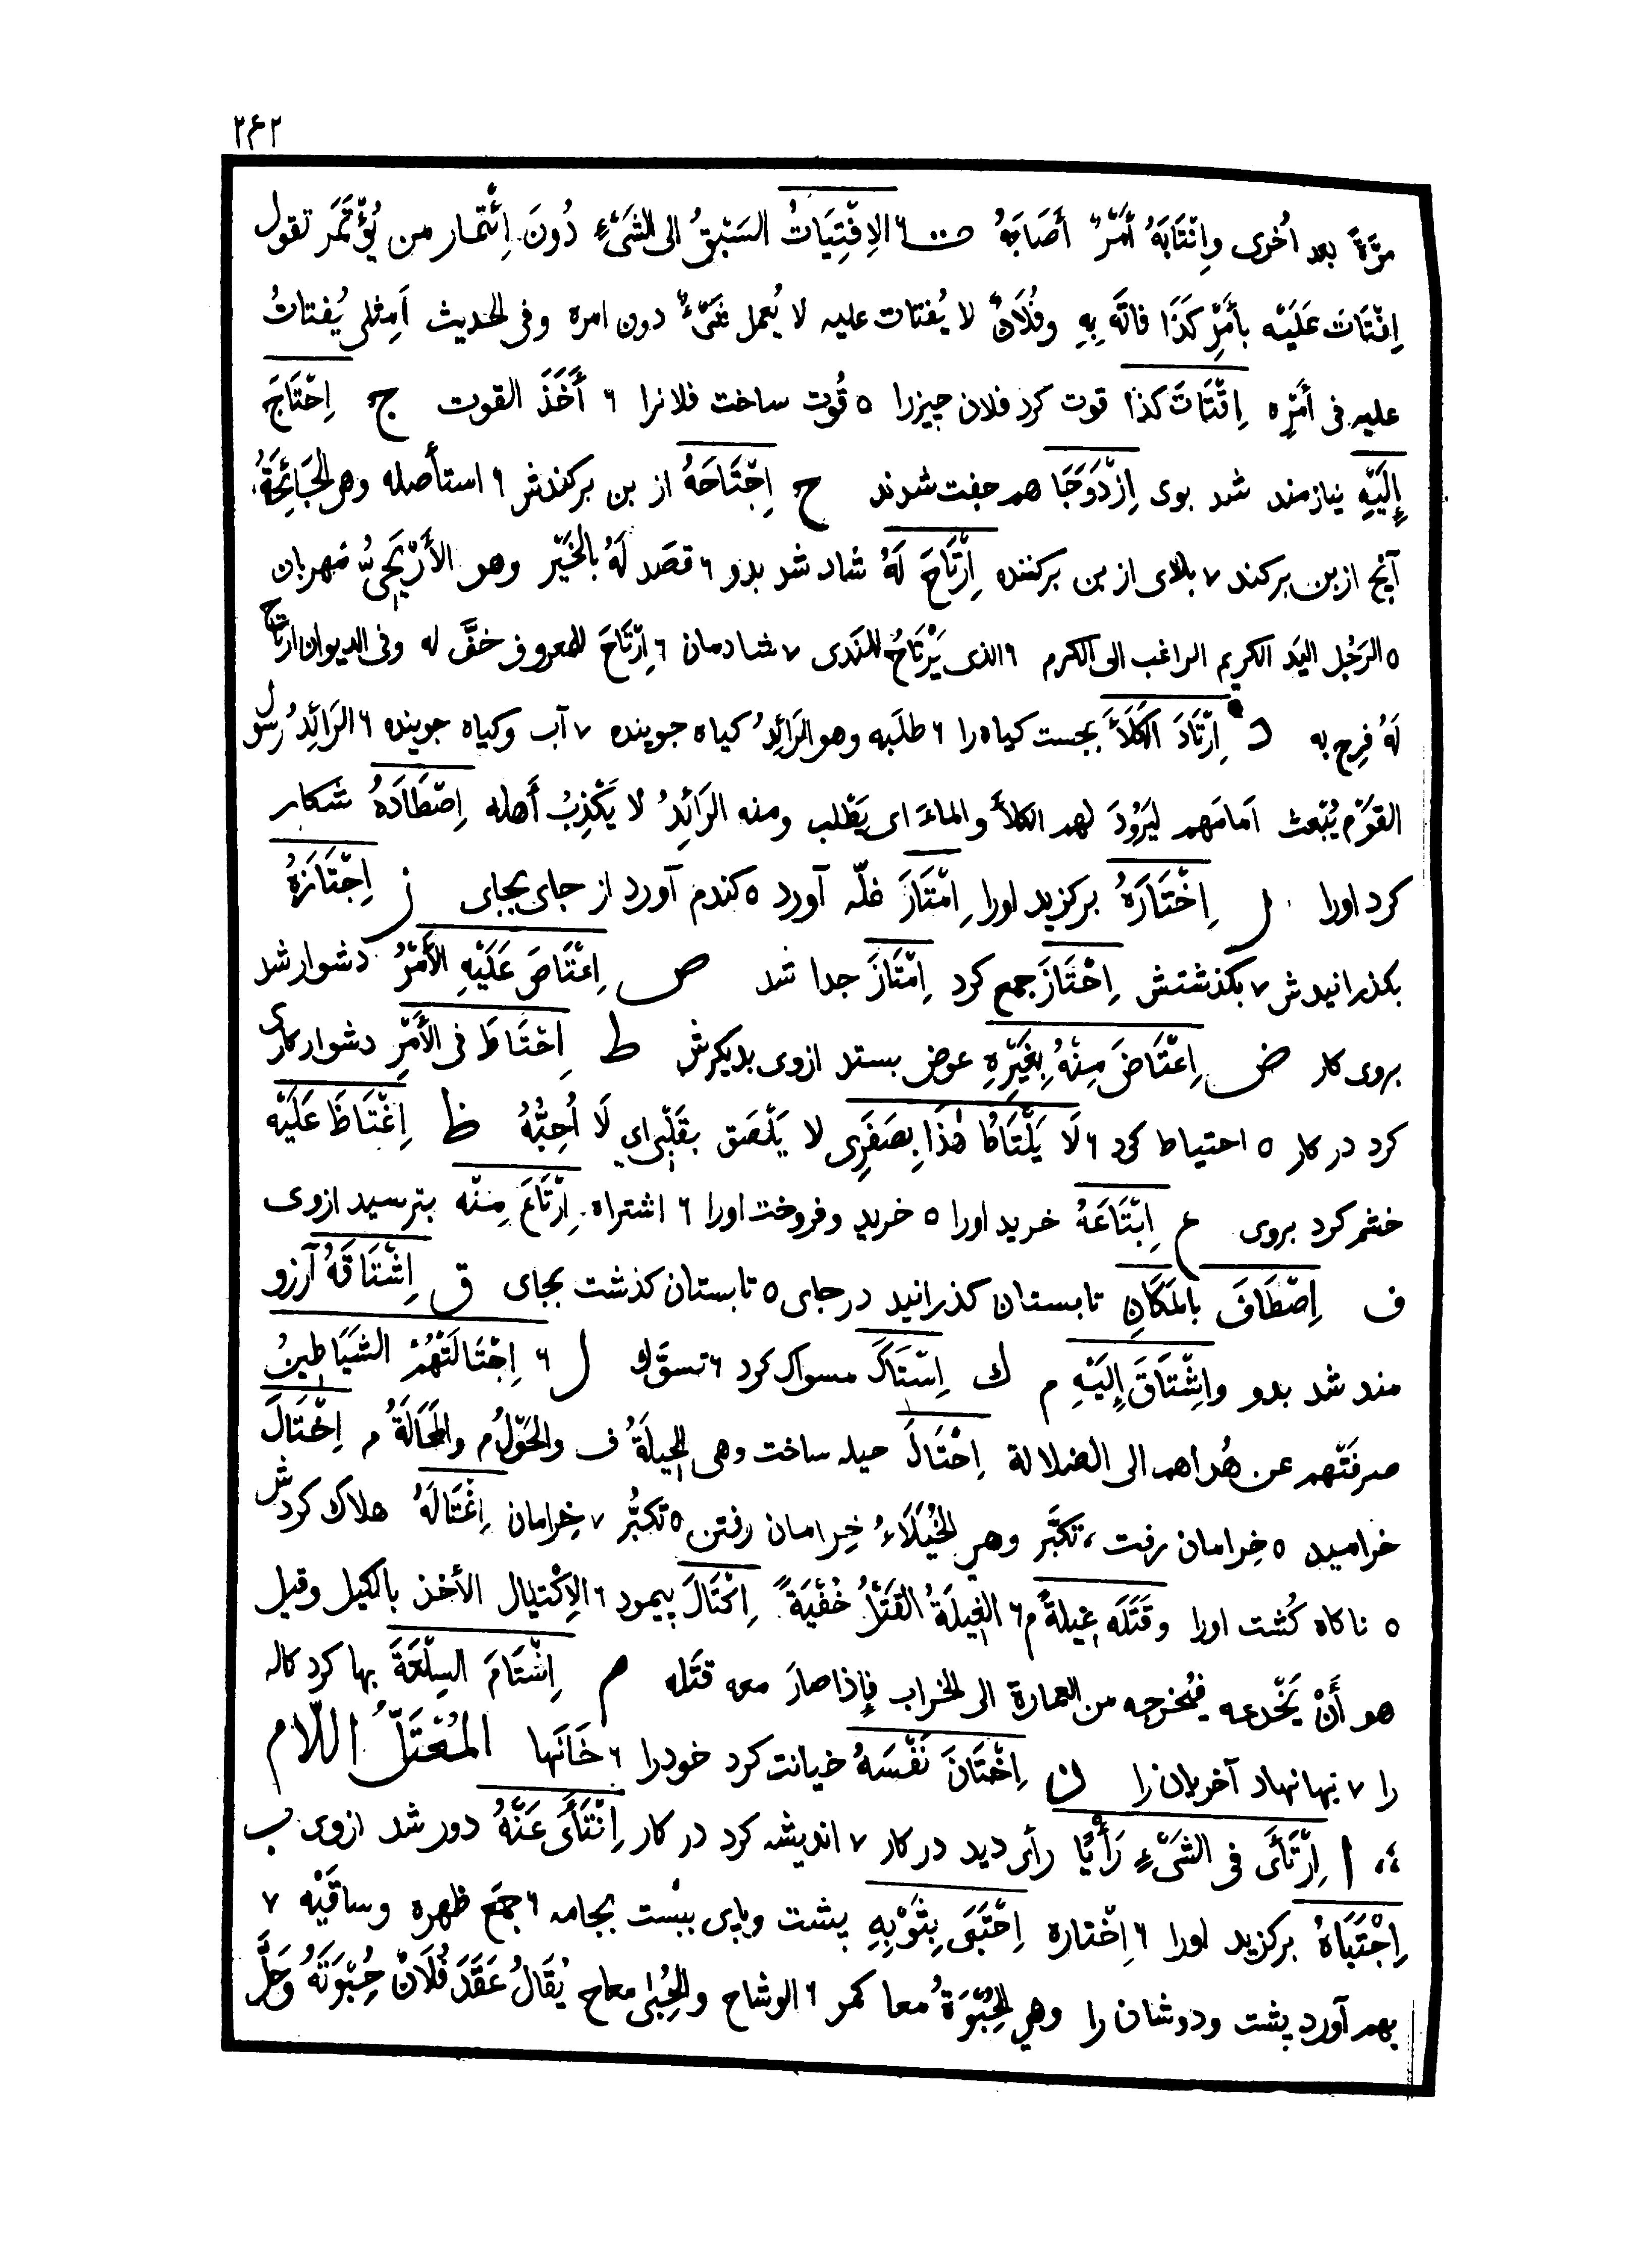 ۲۶۲
مَرَّةً بعد اُخری وانْتَابَهُ أَمْرٌ أَصَابَهُ ت ۶ الاِفْتِيَاتُ السَبْقُ الی الشَیْءِ دُونَ اِئْتِمار من يُؤْتَمَر تقول
اِفْتَاتَ عَلَيْه بأَمْرِ كَذَا فاتَهُ بِهِ وفُلَانٌ لا يُفتات عليه لا يُعمل شَیْءٌ دون امره وفی الحديث اَمِثلی يُفتاتُ
عليه فی أَمْرِه اِقْتَاتَ كذا قوت کرد فلان چیزرا ۵ قُوت ساخت فلانرا ۶ أَخَذَ القوت ج اِحْتَاجَ
إِلَيْهِ نیازمند شد بوی اِزْدَوَجَا هم جفت شدند ح اِجْتَاحَهُ از بن برکندش ۶ استأصله وهی الجَائِحَةُ
آنچ از بن برکند ۷ بلای از بن برکننده اِرْتَاحَ لَهُ شاد شد بدو ۶ قصَد لَهُ بالخَيْر وهو الأَرْيَحِیُّ مهربان
۵ الرَجُل اليَد الكريم الراغب الی الكرم ۶ الذی يَرْتَاحُ للنَدی ۷ شادمان ۶ اِرْتَاحَ للمعروف خفَّ له وفی الديوان ارتاح
لَهُ فرح به د اِرْتَادَ الكَلَأَ بجست کیاه را ۶ طلَبه وهو الرَائِدُ کیاه جوینده ۷ آب وکیاه جوینده ۶ الرَائِدُ رسول
القَوْم يُبْعث اَمامَهم ليَرُودَ لهم الكلأ والماءَ ای يَطْلب ومنه الرَائِدُ لا يَكْذِبُ أَهله اِصْطَادَهُ شکار
کرد اورا ر اِخْتَارَهُ برکزید اورا اِمْتَارَ غلّه آورد ۵ کندم آورد از جای بجای ز اِجْتَازَهُ
بکذرانیدش ۷ بکذشتش اِحْتَازَ جمع کرد اِمْتَازَ جدا شد ص اِعْتَاصَ عَلَيْهِ الأَمْرُ دشوار شد
بروی کار ض اِعْتَاضَ مِنْهُ بِغَيْرِهِ عوض بستد ازوی بدیکرش ط اِحْتَاطَ فی الأَمْرِ دشوار کاری
کرد در کار ۵ احتیاط کرد ۶ لَا يَلْتَاطُ هٰذَا بِصَفَرِی لا يَلْصَق بقَلْبِی ای لَا اُحِبُّهُ ظ اِغْتَاظَ عَلَيْه
خشم کرد بروی ع اِبْتَاعَهُ خرید اورا ۵ خرید وفروخت اورا ۶ اشتراه اِرْتَاعَ مِنْه بترسید ازوی
ف اِصْطَافَ بالمَكَانِ تابستان کذرانید در جای ۵ تابستان کذشت بجای ق اِشْتَاقَهُ آرزو
مند شد بدو واِشْتَاقَ إِلَيْهِ م ك اِسْتَاكَ مسواک کرد ۶ تسوَّك ل ۶ اِجْتَالَتْهُمُ الشَيَاطِينُ
صرفَتْهم عن هُداهم الی الضلالة اِحْتَالَ حیله ساخت وهی الحِيلَةُ ف والحَوْلُ م والمَحَالَةُ م اِخْتَالَ
خرامید ۵ خِرامان رفت ، تکبَّر وهی الخُيَلَاءُ خِرامان رفتن ۵ تکبُّر ۷ خِرامان اِغْتَالَهُ هلاک کردش
۵ ناکاه کُشت اورا وقَتَلَه غِيلَةً م ۶ الغِيلَةُ القَتْلُ خُفْيَةً اِكْتَالَ بپیمود ۶ الاِكْتِيال الأخذ بالكيل وقيل
هو أَنْ يَخْدعه فيُخرجه من العمارة الی الخراب فإِذا صارَ معه قتَله م اِسْتَامَ السِلْعَةَ بها کرد کاله
را ۷ بها نهاد آخریان را ن اِخْتَانَ نَفْسَهُ خیانت کرد خودرا ۶ خَانَها المُعْتَلُّ اللّام
ا اِرْتَأَی فی الشَیْءِ رَأْيًا رأی دید در کار ۷ اندیشه کرد در کار اِنْتَأَی عَنْهُ دور شد ازوی ب
اِجْتَبَاهُ برکزید اورا ۶ اِخْتاره اِحْتَبَی بِثَوْبِهِ پشت وپای ببَست بجامه ۶ جمَع ظهره وساقَيْه ۷
بهم آورد پشت ودوشان را وهی الحِبْوَةُ معا کمر ۶ الوشاح والحِبٰی معاح يُقَالُ عَقَدَ فُلَانٌ حِبْوَتَهُ وَحَلَّ